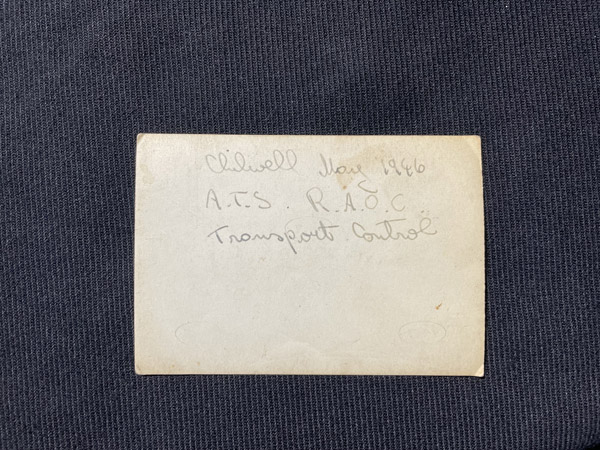 Chilwell May 1946
A.T.S. R.A.O.C.
Transport Control